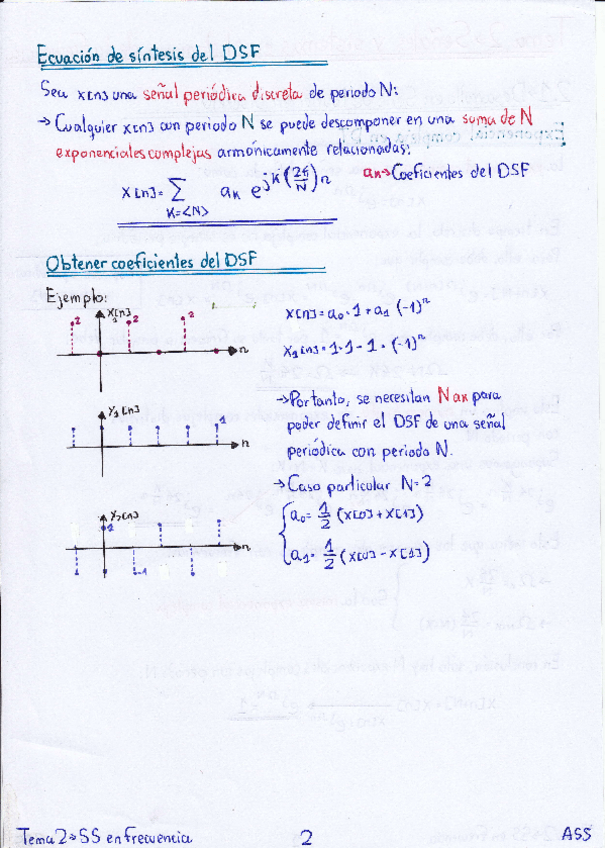 Ecuación de síntesis del DSF
Sea x[n] una señal periódica discreta de periodo N:
→ Cualquier x[n] con periodo N se puede descomponer en una suma de N
exponenciales complejas armónicamente relacionadas:
x[n] = ∑ aₖ e^{jk(2π/N)n}
K=<N>
aₖ → Coeficientes del DSF
Obtener coeficientes del DSF
Ejemplo:
x[n]
2 2 2
n
x[n] = a₀ · 1 + a₁ (-1)ⁿ
x₁[n] = 1 · 1 - 1 · (-1)ⁿ
y₁[n]
1
n
→ Por tanto, se necesitan N aₖ para
poder definir el DSF de una señal
periódica con periodo N.
→ Caso particular N=2
a₀ = 1/2 (x[0] + x[1])
a₁ = 1/2 (x[0] - x[1])
1
-1
n
Tema 2 → SS en frecuencia
2
ASS